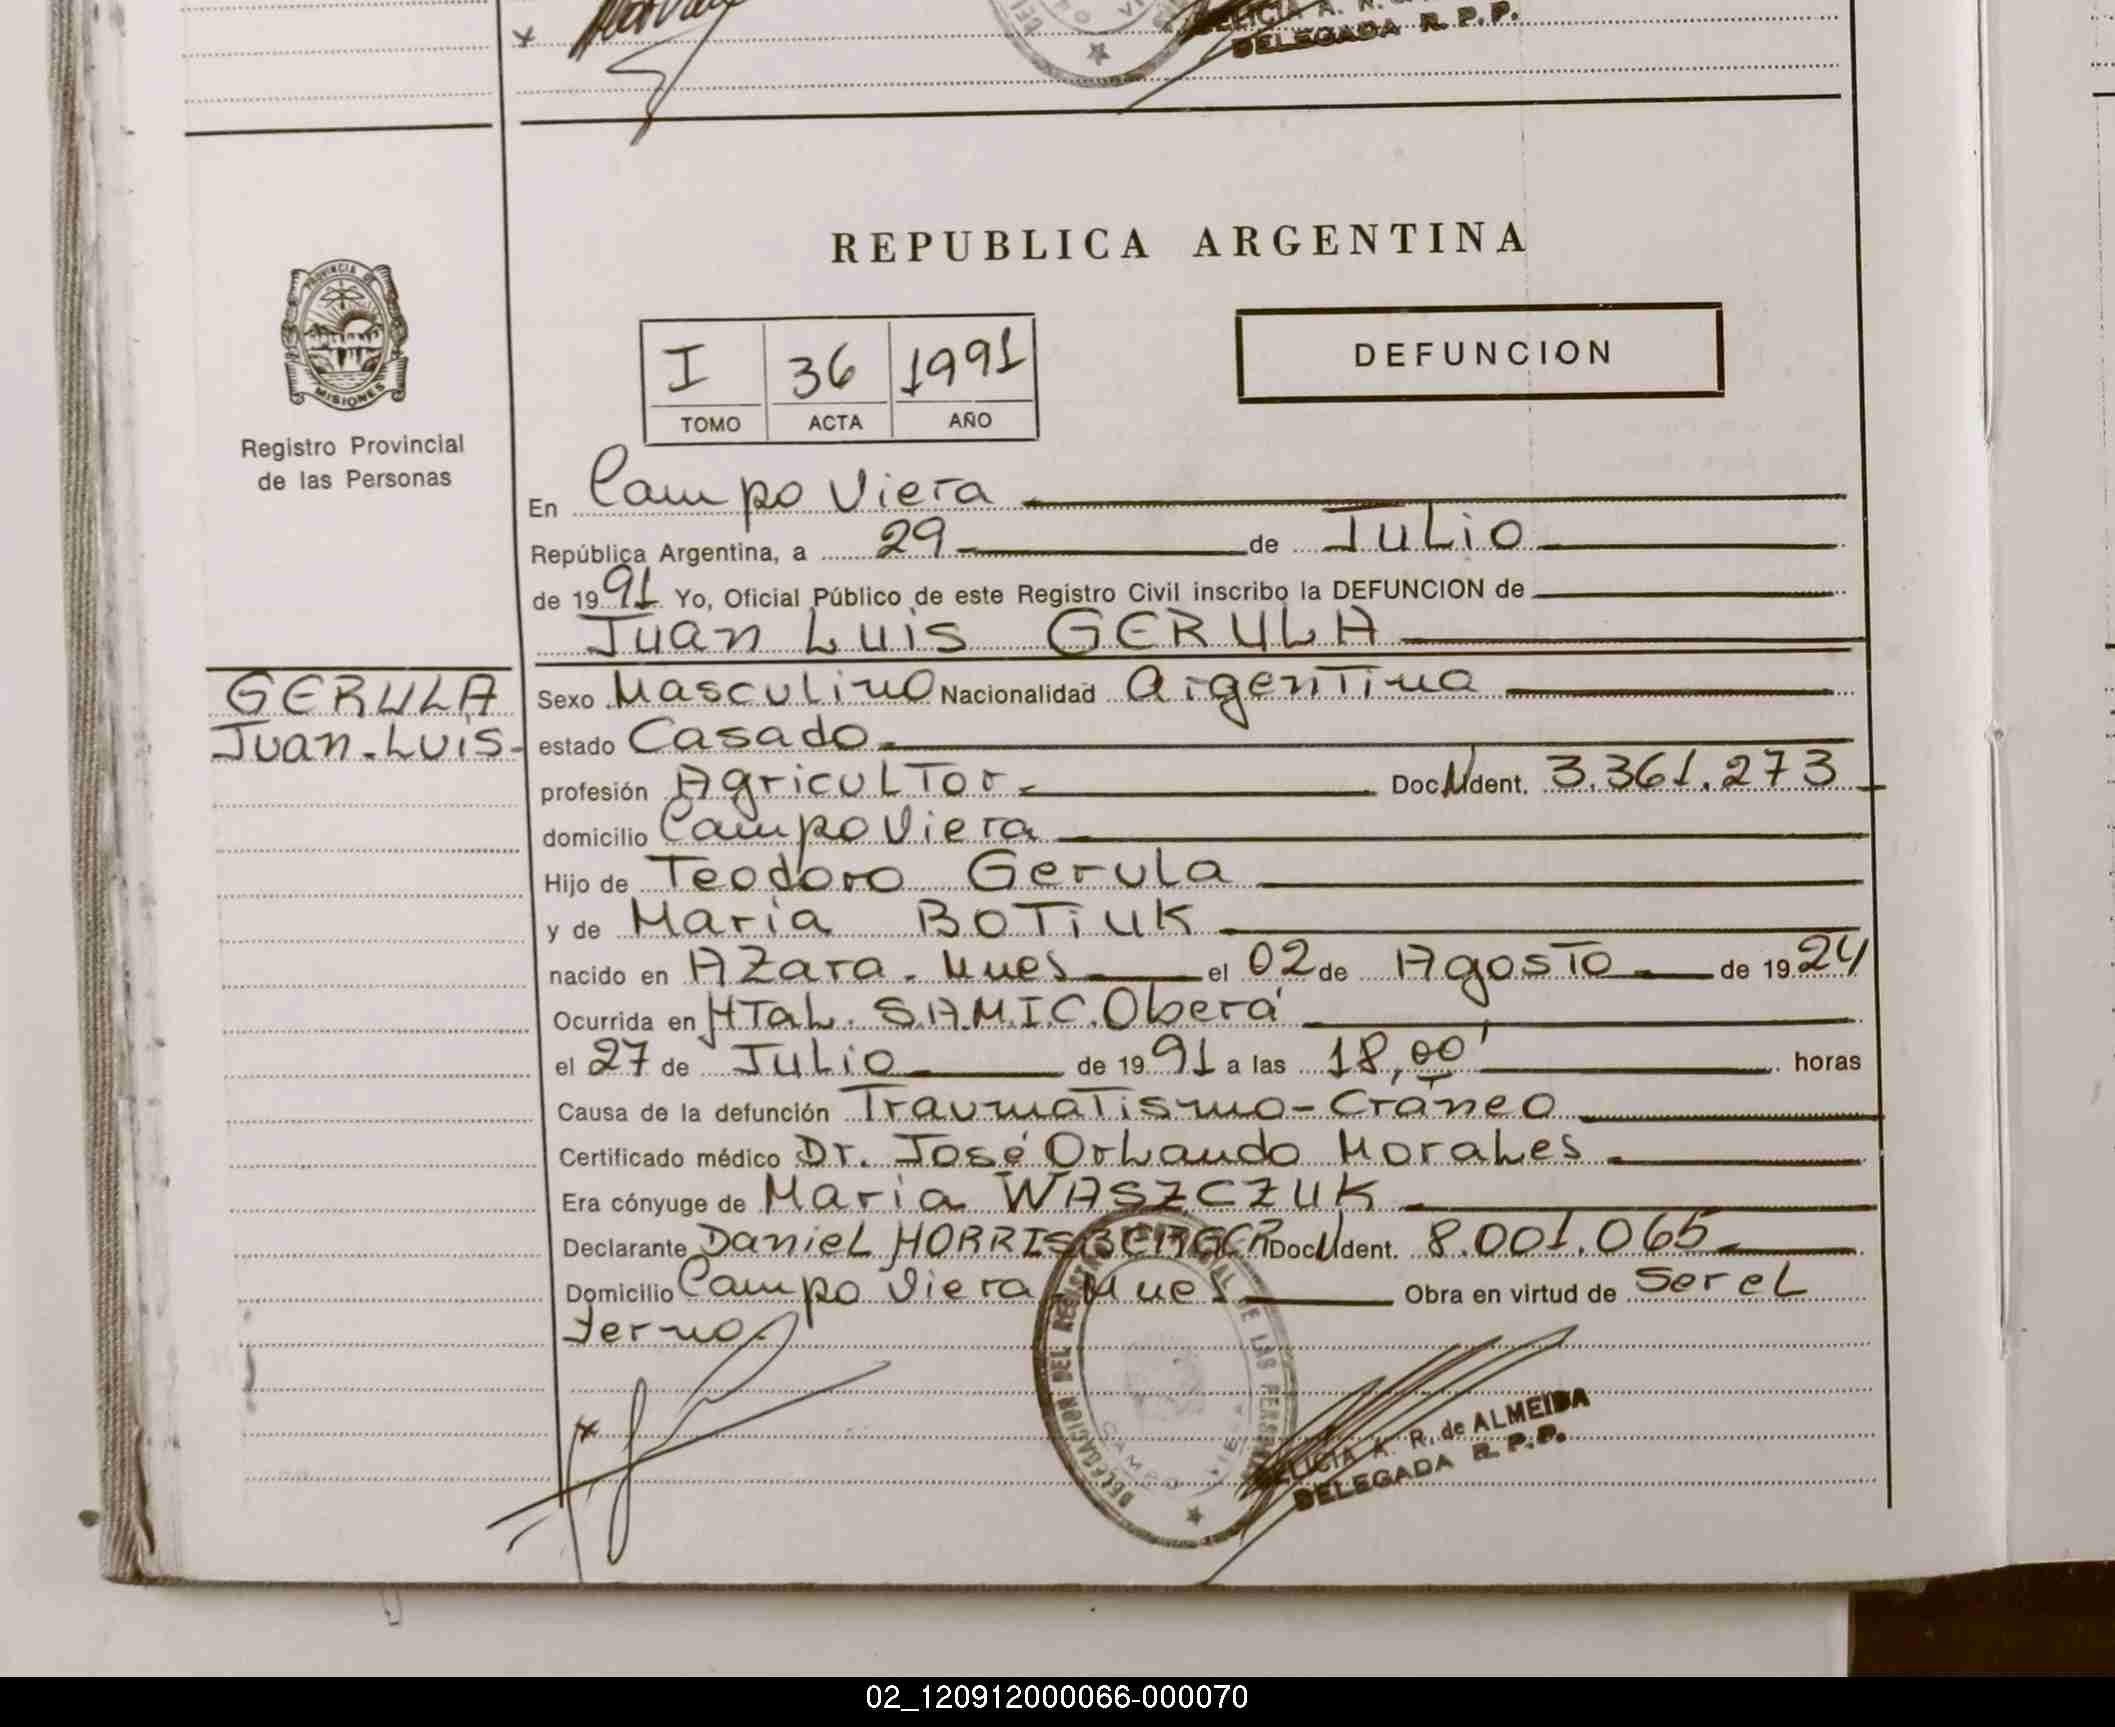 DELEGADA R. P. P.
REPUBLICA ARGENTINA
PROVINCIA DE
MISIONES
Registro Provincial
de las Personas
I 36 1991
TOMO ACTA AÑO
DEFUNCION
En Campo Viera
República Argentina, a 29 de Julio
de 1991 Yo, Oficial Público de este Registro Civil inscribo la DEFUNCION de
Juan Luis GERULA
GERULA
Juan-Luis-
Sexo Masculino Nacionalidad Argentina
estado Casado
profesión Agricultor Doc. Ident. 3.361.273
domicilio Campo Viera
Hijo de Teodoro Gerula
y de Maria BOTIUK
nacido en AZara. Mnes el 02 de Agosto de 1924
Ocurrida en HTal. S.A.M.I.C. Oberá
el 27 de Julio de 1991 a las 18,00' horas
Causa de la defunción Traumatismo-Cráneo
Certificado médico Dr. José Orlando Morales
Era cónyuge de Maria WASZCZUK
Declarante Daniel HORRISBERGER Doc. Ident. 8.001.065
Domicilio Campo Viera-Mnes Obra en virtud de ser el
yerno.
DELEGACION DEL REGISTRO PROVINCIAL DE LAS PERSONAS
CAMPO VIERA
FELICIA A. R. de ALMEIDA
DELEGADA R. P. P.
02_120912000066-000070